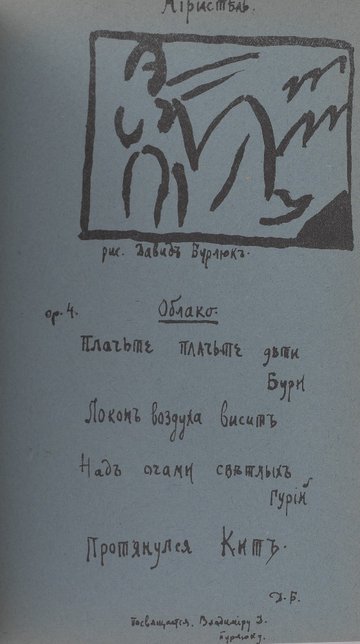 рис. Давидъ Бурлюкъ.
ор. 4.
Облако.
Плачьте плачьте дѣти
Бури
Локонъ воздуха виситъ
Надъ очами свѣтлыхъ
Гурій
Протянулся Китъ.
Д. Б.
Посвящается. Владиміру Д.
Бурлюку.